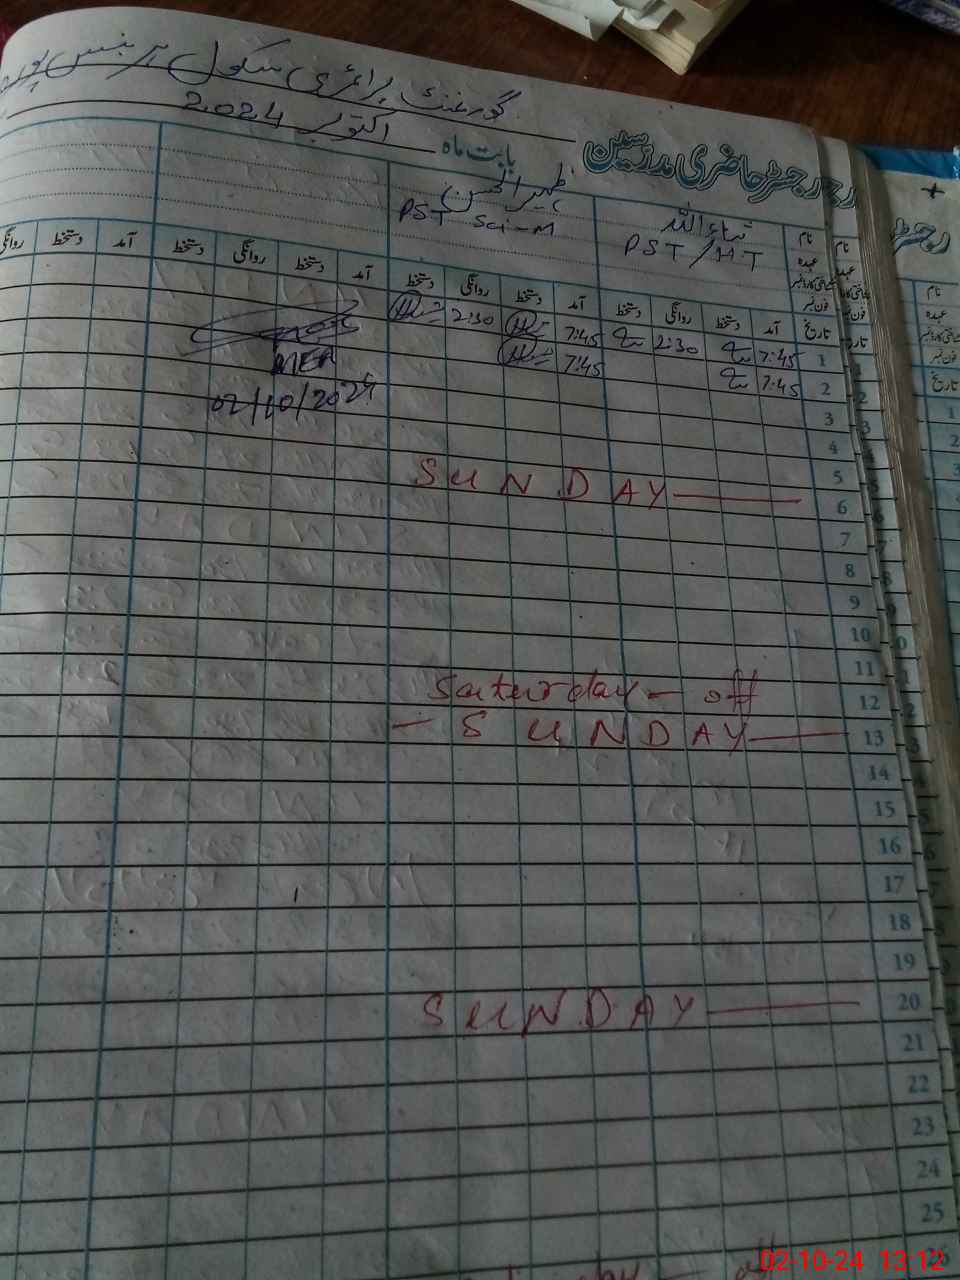 گورنمنٹ پرائمری سکول پرنس پور
رجسٹر حاضری مدرسین
بابت ماہ اکتوبر 2024
نام ثناء اللہ ظہیر الحسن
عہدہ PST/HT PST Sci-M
شناختی کارڈ نمبر
فون نمبر
تاریخ آمد دستخط روانگی دستخط آمد دستخط روانگی دستخط آمد دستخط روانگی دستخط آمد دستخط روانگی
1 7:45 2:30 7:45 2:30
2 7:45 7:45
MEA
02/10/2024
3
4
5
6 SUNDAY
7
8
9
10
11
12 Saturday - off
13 - SUNDAY
14
15
16
17
18
19
20 SUNDAY
21
22
23
24
25
26
02-10-24 13:12
رجسٹر
نام
عہدہ
شناختی کارڈ نمبر
فون نمبر
تاریخ
1
2
3